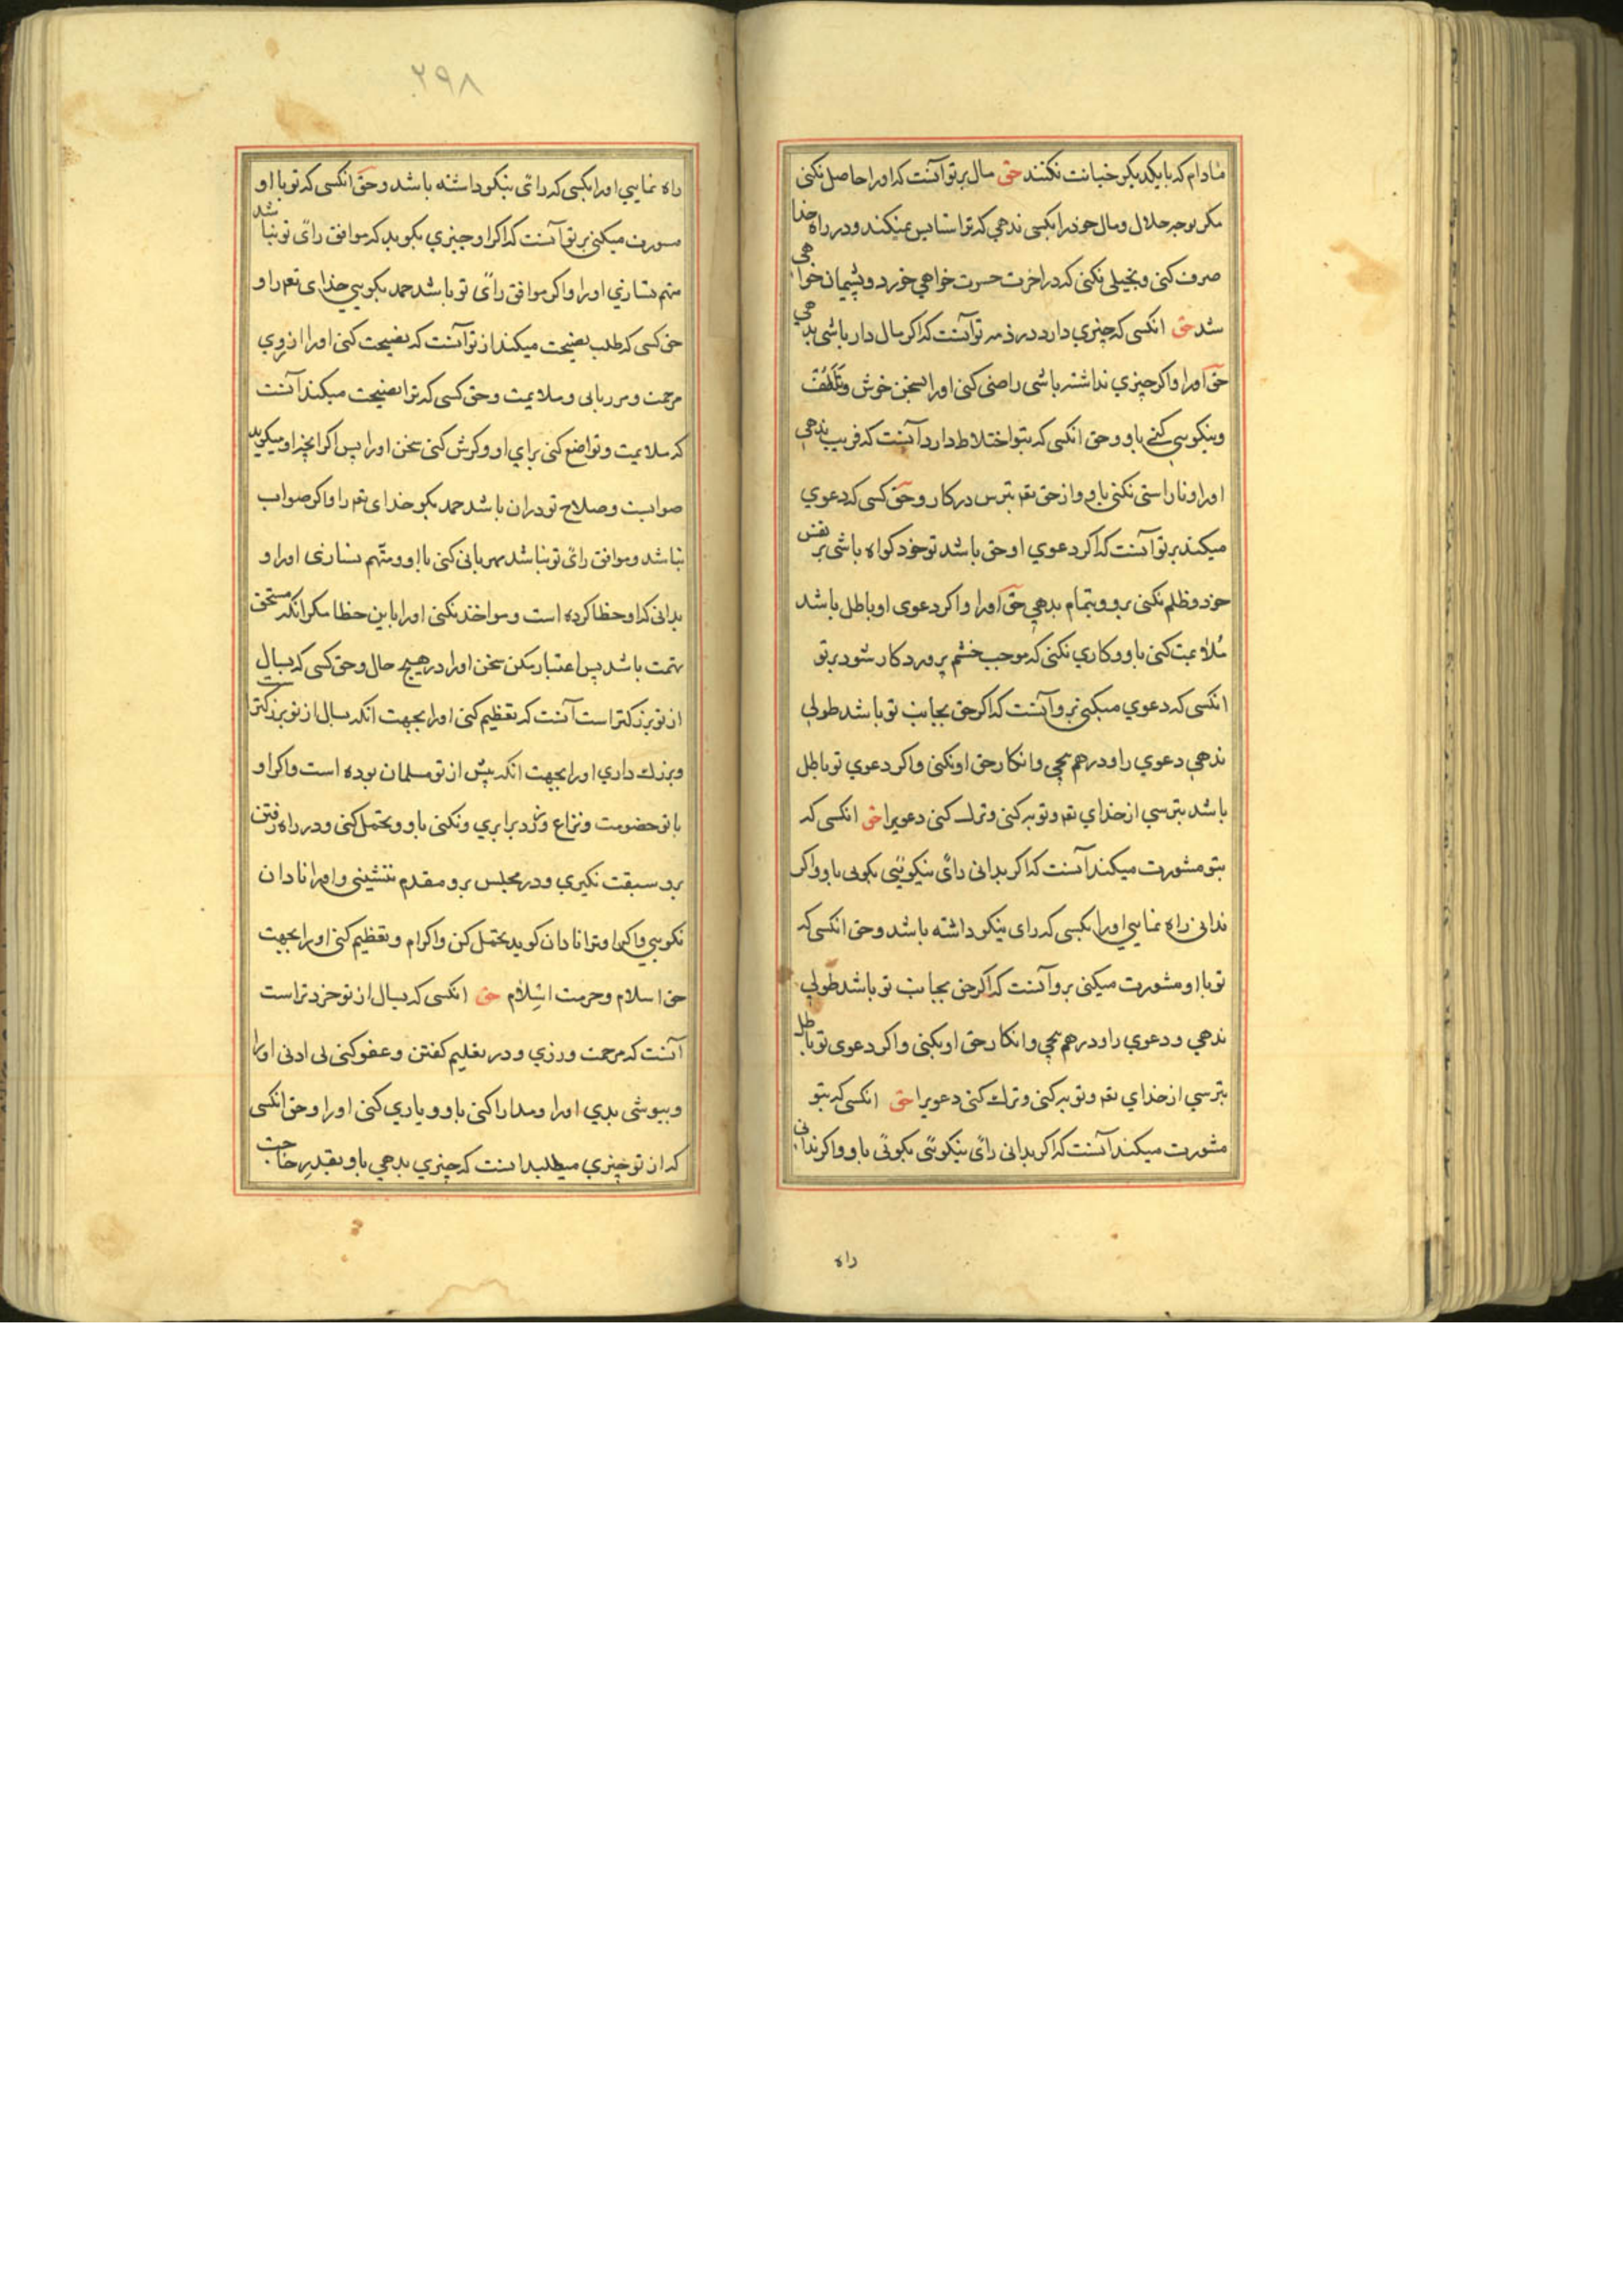 مادام که با یکدیکر خیانت نکنند حق مال بر تو آنست که او را حاصل نکنی
مکر بوجه حلال و مال خود را بکسی ندهی که ترا ستایس نمیکند و در راه خدا
صرف کنی و بخیلی نکنی که در اخرت حسرت خواهی خورد و پشیمان خواهی
شد حق انکسی که چیزی دارد در ذمه تو آنست که اکر مال دار باشی بدهی
حق او را و اکر چیزی نداشته باشی راضی کنی او را بسخن خوش و تلطف
و نیکویی کنی باو و حق انکسی که بتو اختلاط دارد آنست که فریب ندهی
او را و ناراستی نکنی باو و از حق تعم بترس در کار او و حق کسی که دعوی
میکند بر تو آنست که اکر دعوی او حق باشد تو خود کواه باشی بر نفس
خود و ظلم نکنی برو و بتمام بدهی حق او را و اکر دعوی او باطل باشد
ملایمت کنی باو و کاری نکنی که موجب خشم پروردکار شود بر تو
انکسی که دعوی میکنی برو آنست که اکر حق بجانب تو باشد طولی
ندهی دعوی را و درهم پیچی و انکار حق او نکنی و اکر دعوی تو باطل
باشد بترسی از خدای تعم و توبه کنی و ترک کنی دعویرا حق انکسی که
بتو مشورت میکند آنست که اکر بدانی رای نیکوئی بکویی باو و اکر
ندانی راه نمایی او را بکسی که رای نیکو داشته باشد و حق انکسی که
تو با او مشورت میکنی برو آنست که اکر حق بجانب تو باشد طولی
ندهی و دعوی را و درهم پیچی و انکار حق او نکنی و اکر دعوی تو باطل
بترسی از خدای تعم و توبه کنی و ترک کنی دعویرا حق انکسی که بتو
مشورت میکند آنست که اکر بدانی رای نیکوئی بکوئی باو و اکر ندانی
راه
۲۹۸
راه نمایی او را بکسی که رای نیکو داشته باشد و حق انکسی که تو با او
مسورت میکنی بر تو آنست که اکر او چیزی بکوید که موافق رای تو نباشد
متهم نسازی او را و اکر موافق رای تو باشد حمد بکویی خدای تعم را و
حق کسی که طلب نصیحت میکند از تو آنست که نصیحت کنی او را از روی
مرحمت و مهربانی و ملایمت و حق کسی که ترا نصیحت میکند آنست
که ملایمت و تواضع کنی برای او و کوش کنی سخن او را پس اکر انچه او میکوید
صوابست و صلاح تو در ان باشد حمد بکو خدای تعم را و اکر صواب
نباشد و موافق رای تو نباشد مهربانی کنی با او و متهم نسازی او را و
بدانی که او خطا کرده است و مواخذه نکنی او را باین خطا مکر انکه مستحق
تهمت باشد پس اعتبار مکن سخن او را در هیچ حال و حق کسی که بسال
از تو بزرکتر است آنست که تعظیم کنی او را بجهت انکه بسال از تو بزرکتر است
و بزرک داری او را بجهت انکه پیش از تو مسلمان بوده است و اکر او
با تو خصومت و نزاع ورزد برابری و نکنی باو و تحمل کنی و در راه رفتن
برو سبقت نکیری و در مجلس برو مقدم ننشینی و او را نادان
نکویی و اکر او ترا نادان کوید تحمل کن و اکرام و تعظیم کنی او را بجهت
حق اسلام و حرمت اسلام حق انکسی که بسال از تو خردتر است
آنست که مرحمت ورزی و در تعلیم کفتن و عفو کنی بی ادبی او را
و بپوشی بدی او را و مدارا کنی باو و یاری کنی او را و حق انکسی
که از تو چیزی میطلبد انست که چیزی بدهی باو بقدر حاجت